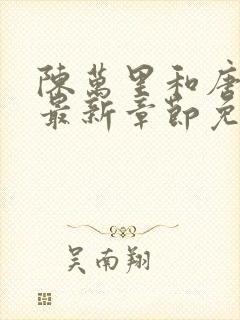 陳萬里和唐
最新章節免
吴南翔